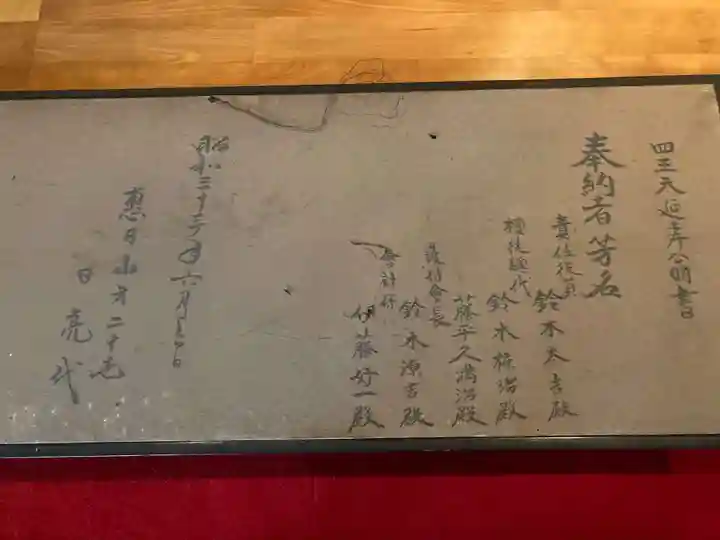 四天王延弄公明書
奉納者芳名
責任役員
鈴木太吉殿
檀徒総代
鈴木梅治殿
藤平久満治殿
護持会長
鈴木源吉殿
会計係
伊藤好一殿
昭和三十三年六月吉日
恵日山才二十七
日亮代